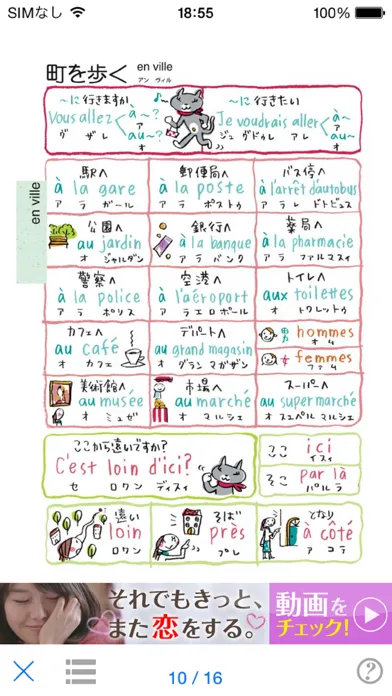 SIMなし 18:55 100%
町を歩く en ville
アン ヴィル
〜に行きますか
Vous allez à〜?
au〜?
ヴ ザレ ア オ
〜に行きたい
Je voudrais aller à〜
au〜
ジュ ヴドゥレ アレ ア オ
en ville
駅へ
à la gare
ア ラ ガール
郵便局へ
à la poste
ア ラ ポストゥ
バス停へ
à l'arrêt d'autobus
ア ラ レ ドトビュス
公園へ
au jardin
オ ジャルダン
銀行へ
à la banque
ア ラ バンク
薬局へ
à la pharmacie
ア ラ ファルマスィ
警察へ
à la police
ア ラ ポリス
空港へ
à l'aéroport
ア ラエロポール
トイレへ
aux toilettes
オ トワレットゥ
カフェへ
au café
オ カフェ
デパートへ
au grand magasin
オ グラン マガザン
男 hommes
オム
女 femmes
ファム
美術館へ
au musée
オ ミュゼ
市場へ
au marché
オ マルシェ
スーパーへ
au supermarché
オ スュペルマルシェ
ここから遠いですか?
C'est loin d'ici?
セ ロワン ディスィ
ここ ici
イスィ
そこ par là
パル ラ
遠い
loin
ロワン
そば
près
プレ
となり
à côté
ア コテ
それでもきっと、
また恋をする。
動画を
チェック!
10 / 16
?